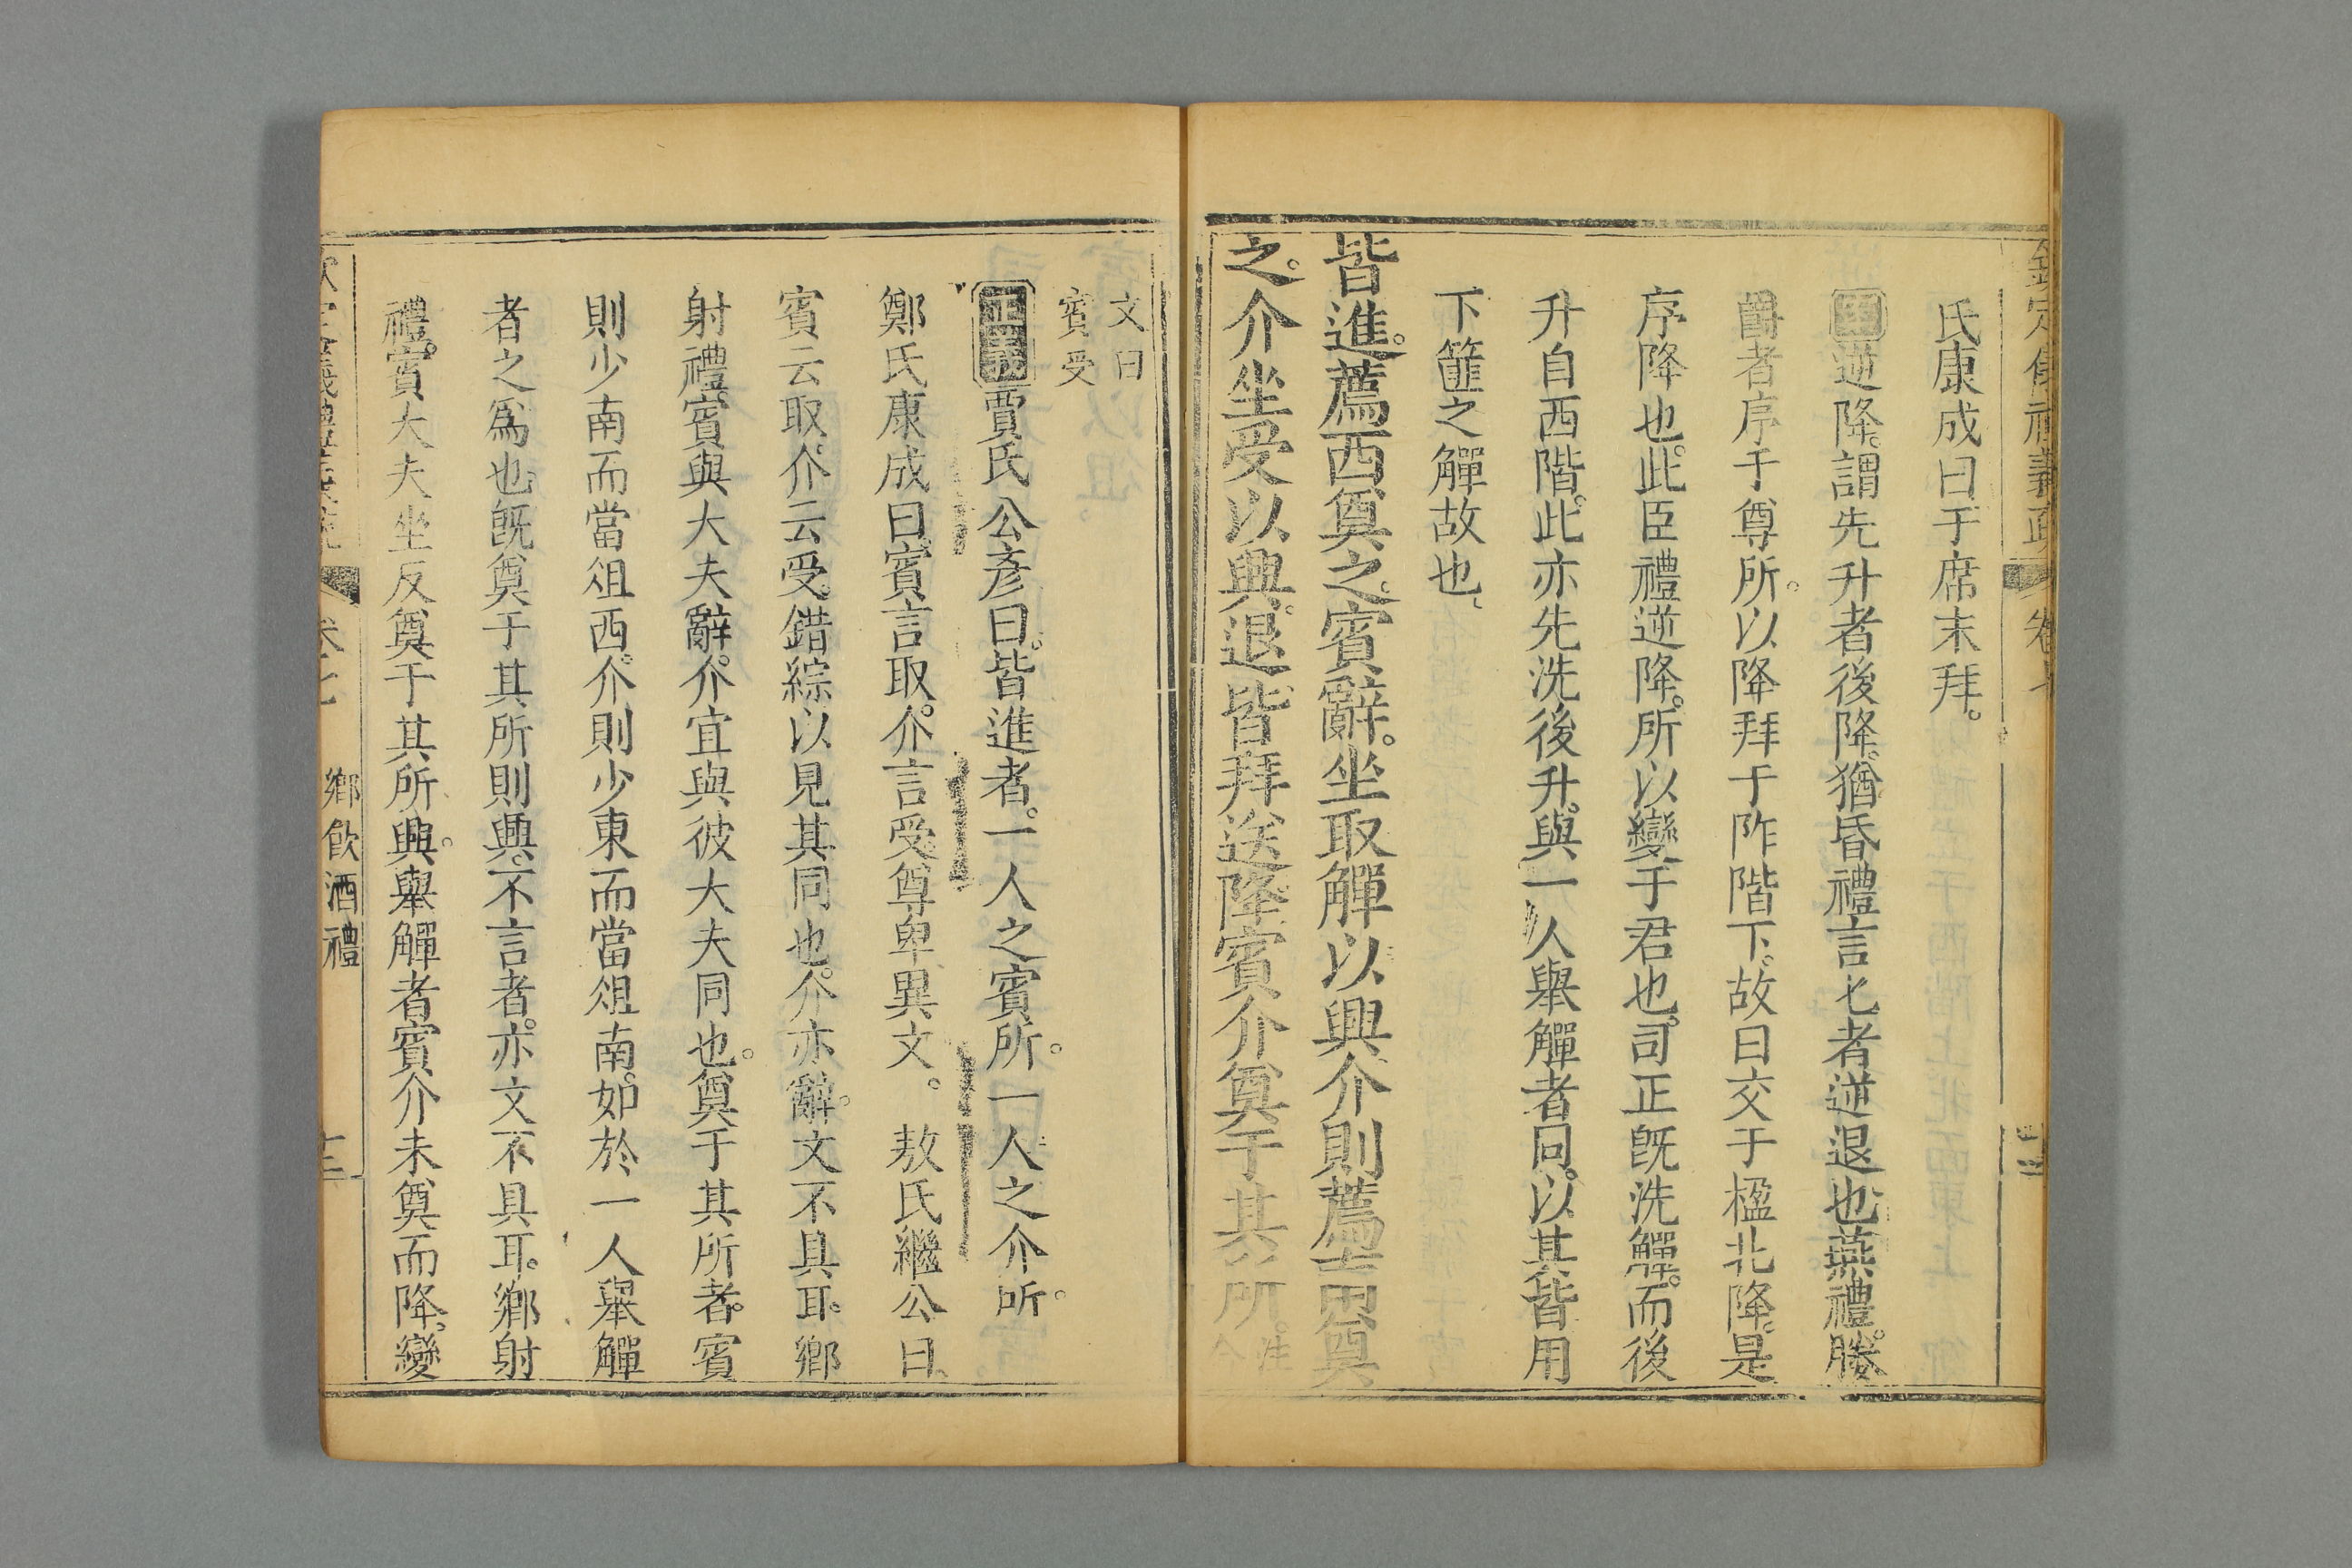 欽定儀禮義疏 卷七
氏康成曰于席末拜。
逆降。謂先升者後降。猶昏禮言匕者逆退也。燕禮。媵
爵者序于尊所。以降拜于阼階下。故曰交于楹北降。是
序降也。此臣禮逆降。所以變于君也。司正既洗觶。而後
升自西階。此亦先洗後升。與一人舉觶者同。以其皆用
下篚之觶故也、
皆進。薦西奠之。賓辭。坐取觶以興。介則薦南奠
之。介坐受以興。退。皆拜送降。賓介奠于其所。
今
文曰
賓受
正義賈氏公彥曰。皆進者。一人之賓所。一人之介所。
鄭氏康成曰。賓言取。介言受。尊卑異文。 敖氏繼公曰。
賓云取。介云受。錯綜以見其同也。介亦辭。文不具耳。鄉
射禮。賓與大夫辭。介宜與彼大夫同也。奠于其所者。賓
則少南而當俎西。介則少東而當俎南。如於一人舉觶
者之爲也。既奠于其所則興。不言者。亦文不具耳。鄉射
禮。賓大夫坐反奠于其所。興。舉觶者賓介未奠而降。變
欽定儀禮義疏 卷七 鄉飲酒禮 十三